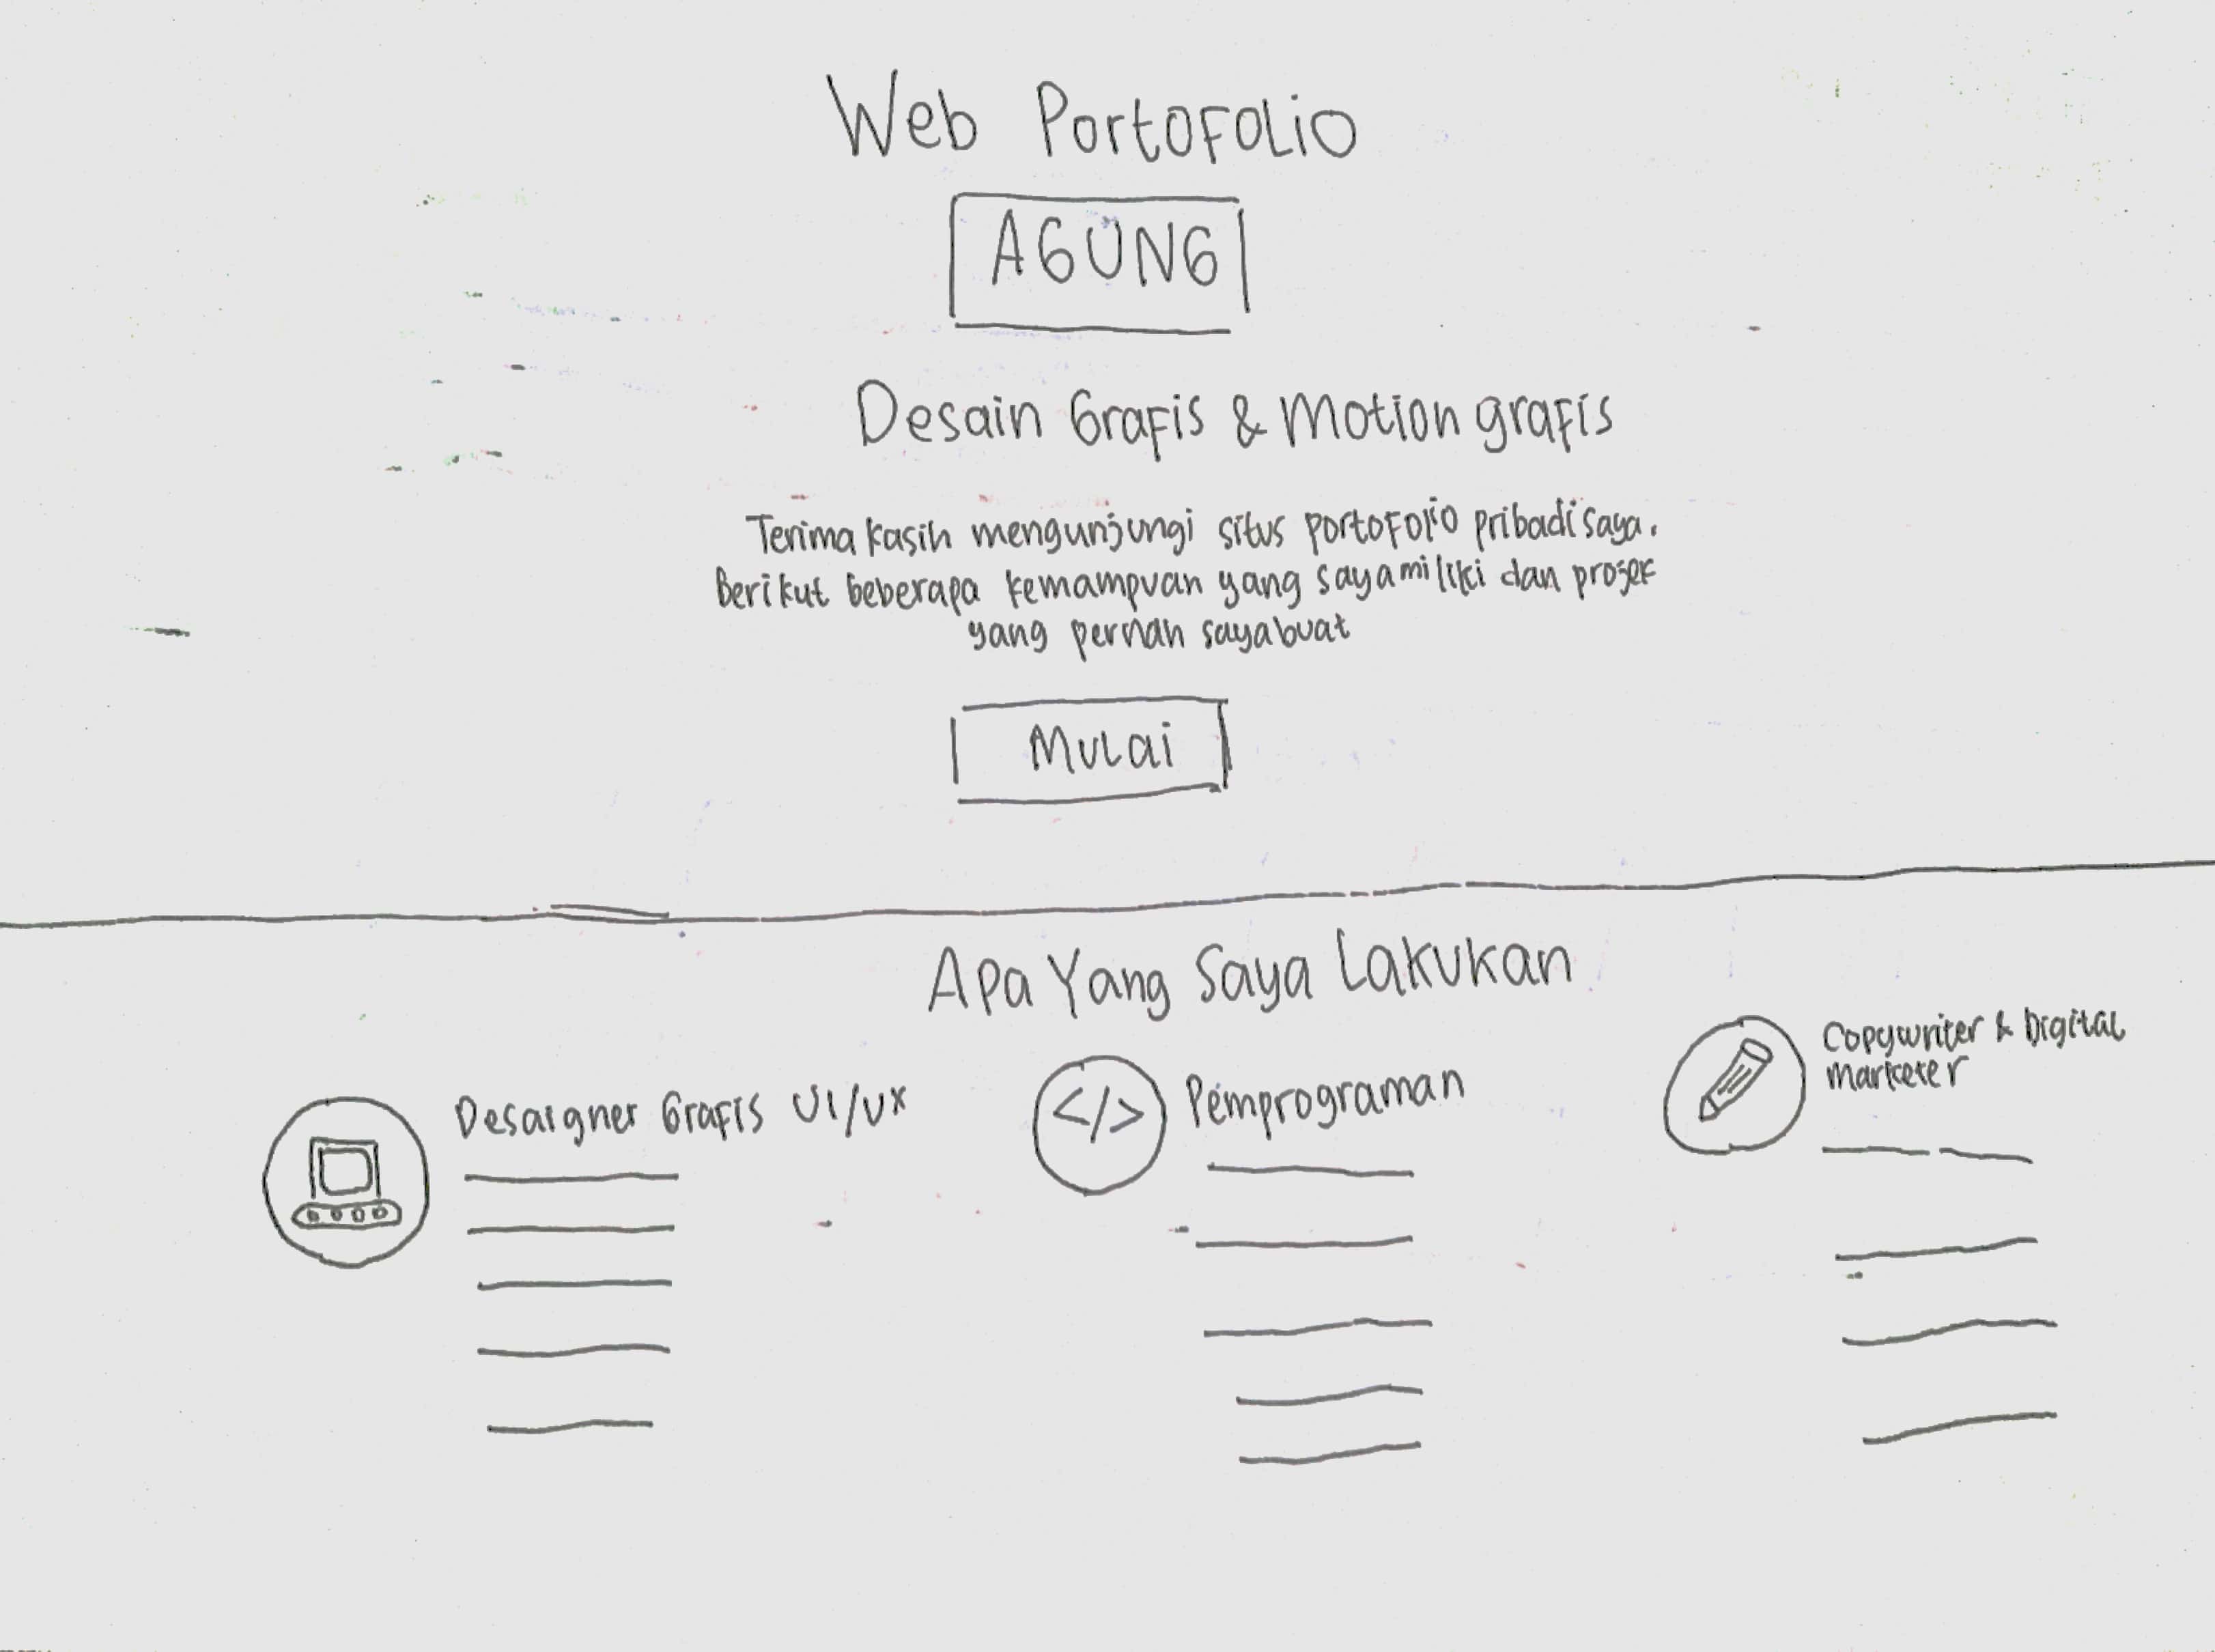 Web Portofolio
AGUNG
Desain Grafis & Motion grafis
Terima kasih mengunjungi situs portofolio pribadi saya.
Berikut beberapa kemampuan yang saya miliki dan projek
yang pernah saya buat
Mulai
Apa Yang Saya Lakukan
Desaigner Grafis UI/UX
</>
Pemprograman
Copywriter & Digital
marketer